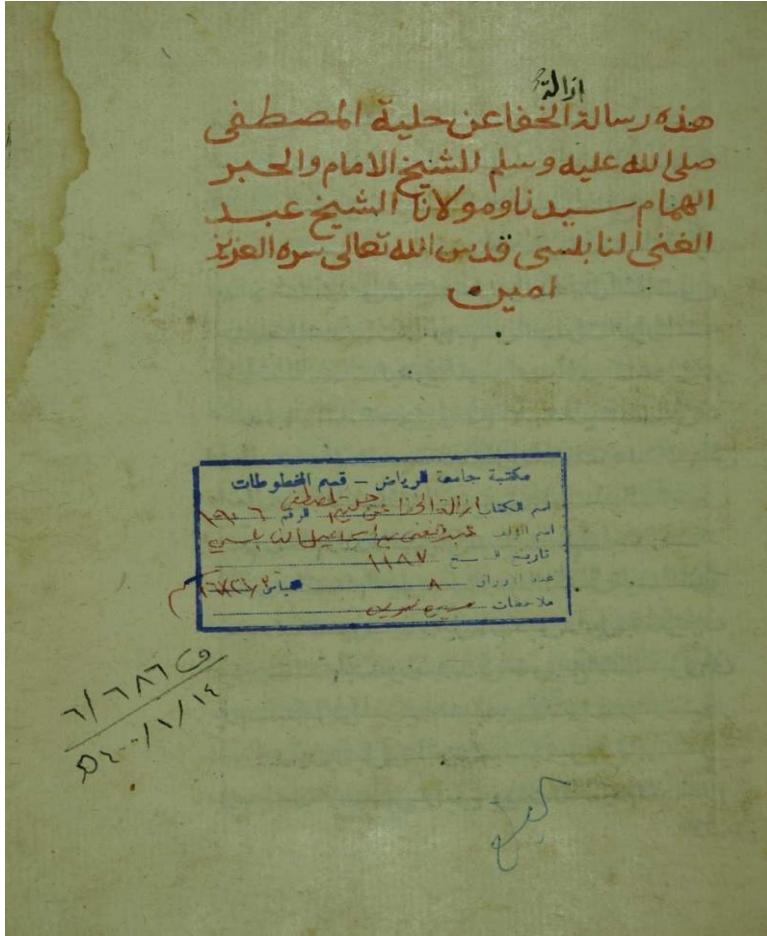 ازالة
هذه رسالة الخفا عن حلية المصطفى
صلى الله عليه وسلم للشيخ الامام والحبر
الهمام سيدنا ومولانا الشيخ عبد
الغنى النابلسى قدس الله تعالى سره العزيز
امين
مكتبة جامعة الرياض - قسم المخطوطات
اسم الكتاب ازالة الخفا عن حلية المصطفى الرقم
اسم المؤلف عبد الغني بن اسماعيل النابلسي
تاريخ النسخ ١١٩٧
عدد الاوراق ٨
ملاحظات
ف ٦/٦٨٦
١٤/١/٤٠٠